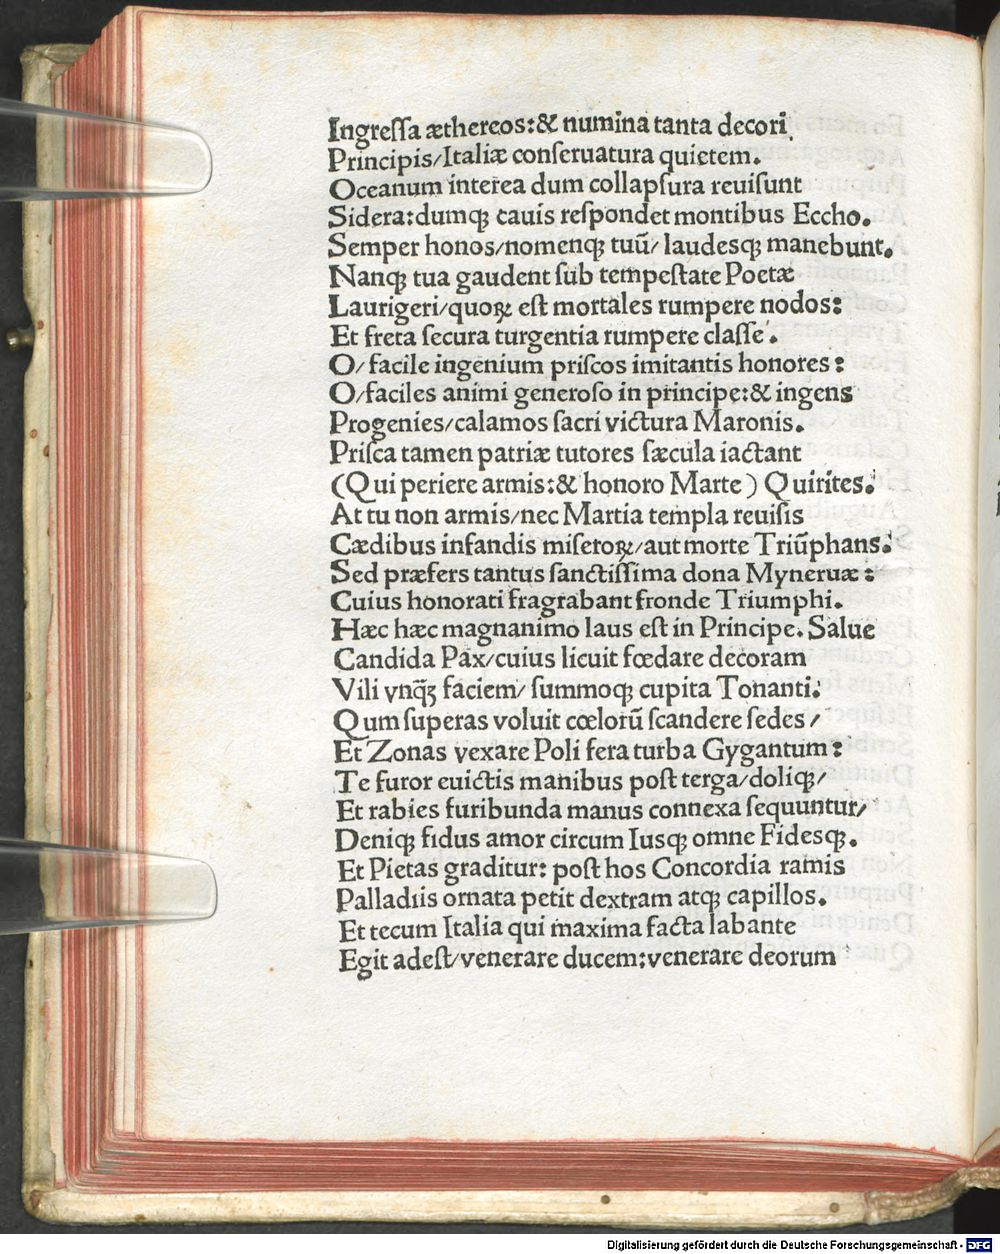 Ingreſſa æthereos:& numina tanta decori.
Principis/Italiæ conſeruatura quietem.
Oceanum interea dum collapſura reuiſunt
Sidera:dumqꝫ cauis reſpondet montibus Eccho.
Semper honos/nomenqꝫ tuū/ laudesqꝫ manebunt.
Nanqꝫ tua gaudent ſub tempeſtate Poetæ
Laurigeri/quoꝝ eſt mortales rumpere nodos:
Et freta ſecura turgentia rumpere claſſe.
O/ facile ingenium priſcos imitantis honores:
O/faciles animi generoſo in principe:& ingens
Progenies/calamos ſacri victura Maronis.
Priſca tamen patriæ tutores ſæcula iactant
(Qui periere armis:& honoro Marte) Quirites.
At tu non armis/nec Martia templa reuiſis
Cædibus infandis miſeroꝝ/aut morte Triūphans.
Sed præfers tantus ſanctiſſima dona Myneruæ:
Cuius honorati fragrabant fronde Triumphi.
Hæc hæc magnanimo laus eſt in Principe. Salue
Candida Pax/cuius licuit fœdare decoram
Vili vnq̃ꝫ faciem/ ſummoqꝫ cupita Tonanti.
Qum ſuperas voluit cœlorū ſcandere ſedes/
Et Zonas vexare Poli fera turba Gygantum:
Te furor euictis manibus poſt terga/doliqꝫ/
Et rabies furibunda manus connexa ſequuntur/
Deniqꝫ fidus amor circum Iusqꝫ omne Fidesqꝫ.
Et Pietas graditur: poſt hos Concordia ramis
Palladiis ornata petit dextram atqꝫ capillos.
Et tecum Italia qui maxima facta labante
Egit adeſt/venerare ducem:venerare deorum
Digitalisierung gefördert durch die Deutsche Forschungsgemeinschaft - DFG